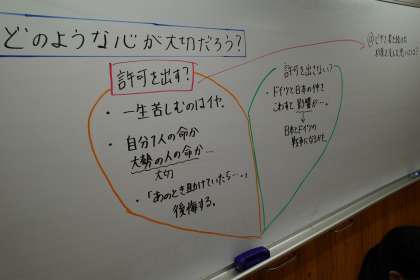 どのような心が大切だろう?
許可を出す?
・一生苦しむのはイヤ。
・自分1人の命か
大勢の人の命か…
大切
・「あのとき助けていたら…。」
後悔する。
許可を出さない?
・ドイツと日本の仲を
こわす 影響が…。
↓
日本とドイツの
戦争になるかも